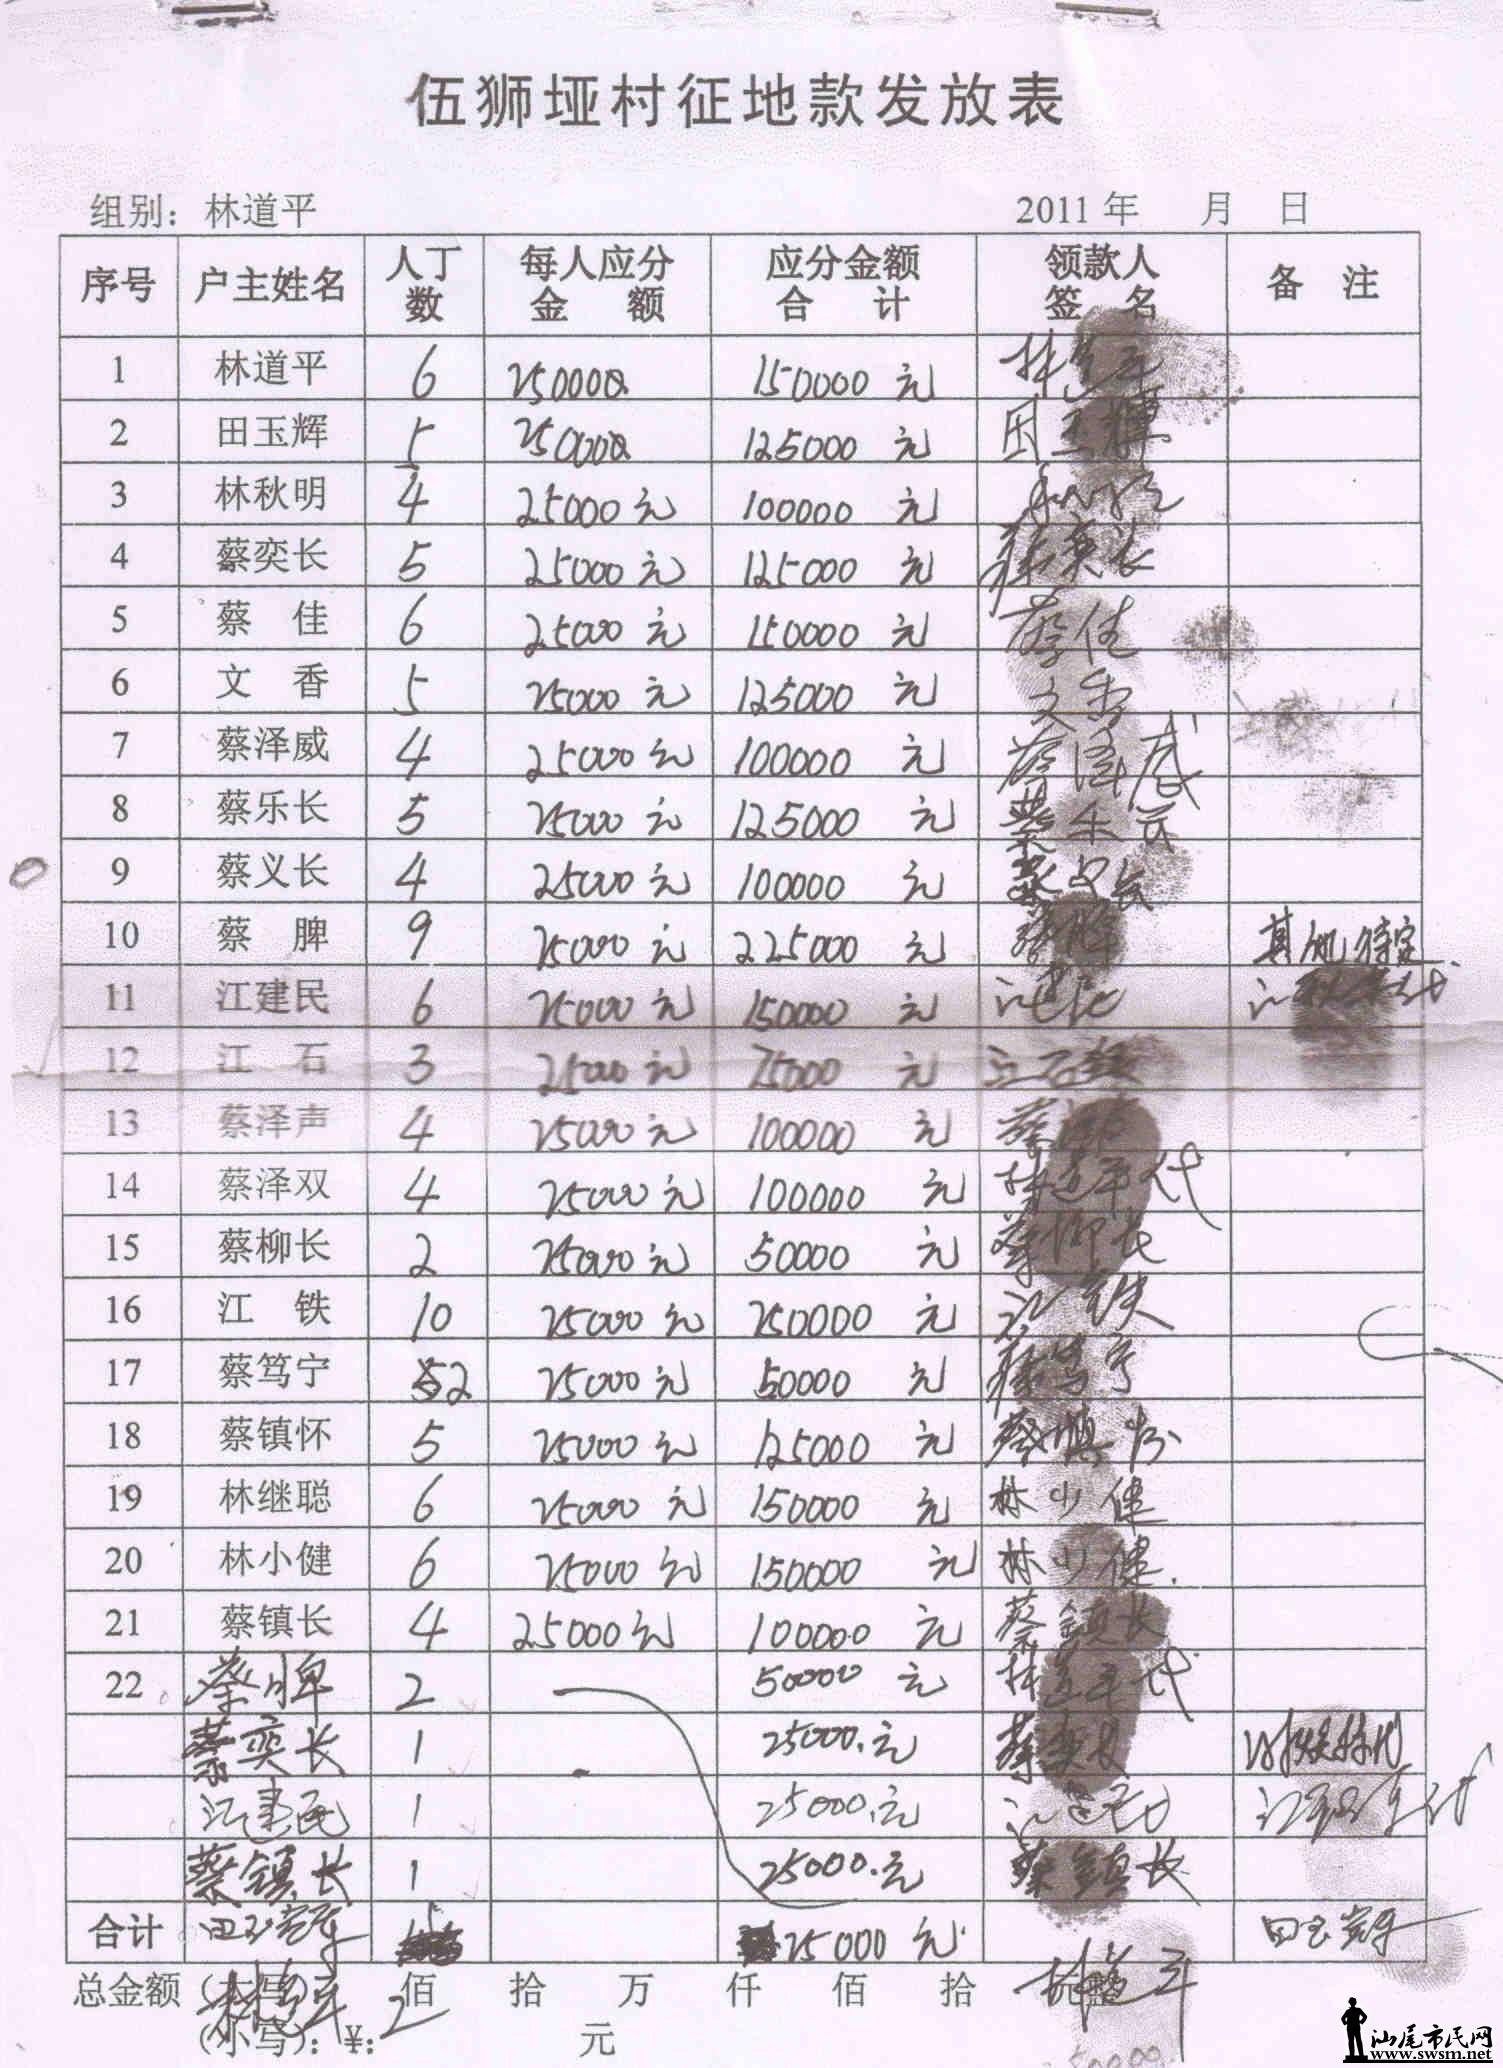 伍狮垭村征地款发放表
组别：林道平 2011年 月 日
序号 户主姓名 人丁数 每人应分金额 应分金额合计 领款人签名 备注
1 林道平 6 250000 150000 元 林道平
2 田玉辉 5 250000 125000 元 田玉辉
3 林秋明 4 25000元 100000 元
4 蔡奕长 5 25000元 125000 元 蔡奕长
5 蔡 佳 6 25000元 150000 元 蔡佳
6 文 香 5 25000元 125000 元 文香
7 蔡泽威 4 25000元 100000 元 蔡泽威
8 蔡乐长 5 25000元 125000 元 蔡乐长
9 蔡义长 4 25000元 100000 元 蔡义长
10 蔡 脾 9 25000元 225000 元
11 江建民 6 25000元 150000 元 江建民
12 江 石 3 25000元 75000 元 江石
13 蔡泽声 4 25000元 100000 元
14 蔡泽双 4 25000元 100000 元 林道平代
15 蔡柳长 2 25000元 50000 元 蔡柳长
16 江 铁 10 25000元 250000 元 江铁
17 蔡笃宁 2 25000元 50000 元 蔡笃宁
18 蔡镇怀 5 25000元 125000 元 蔡镇怀
19 林继聪 6 25000元 150000 元 林小健
20 林小健 6 25000元 150000 元 林小健
21 蔡镇长 4 25000元 100000 元 蔡镇长
22 蔡脾 2 50000 元 林道平代
蔡奕长 1 25000.元 蔡奕长
江建民 1 25000.元 江建民
蔡镇长 1 25000.元 蔡镇长
合计 25000元
总金额（大写） 佰 拾 万 仟 佰 拾 林道平
（小写）：￥： 2 元
汕尾市民网
www.swsm.net